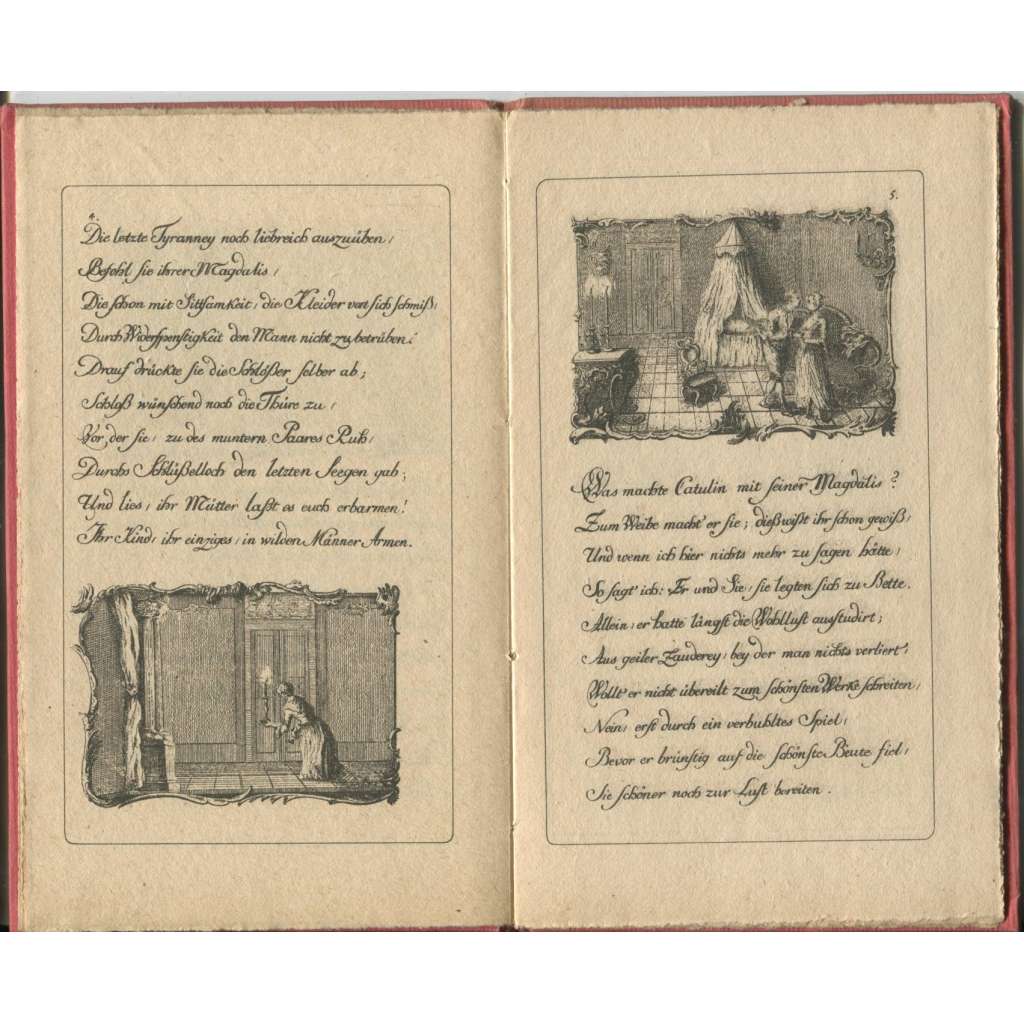 4.
Die letzte Tyranney noch liebreich auszuüben,
Befohl sie ihrer Magdalis,
Die schon mit Sittsamkeit, die Kleider von sich schmiß,
Durch Widerspenstigkeit den Mann nicht zu betrüben.
Drauf drückte sie die Schlößer selber ab;
Schloß wünschend noch die Thüre zu,
Vor der sie, zu des muntern Paares Ruh,
Durchs Schlüßelloch den letzten Seegen gab;
Und lies, ihr Mütter laßt es euch erbarmen!
Ihr Kind, ihr einziges, in wilden Männer Armen.
5.
Was machte Catulin mit seiner Magdalis?
Zum Weibe macht er sie; dieß wißt ihr schon gewiß,
Und wenn ich hier nichts mehr zu sagen hätte,
So sagt' ich: Er und Sie, sie legten sich zu Bette.
Allein, er hatte längst die Wohllust ausstudirt;
Aus geiler Zauderey, bey der man nichts verliert,
Wollt er nicht übereilt zum schönsten Werke schreiten,
Nein, erst durch ein verbuhltes Spiel,
Bevor er brünstig auf die schönste Beute fiel,
Sie schöner noch zur Lust bereiten.